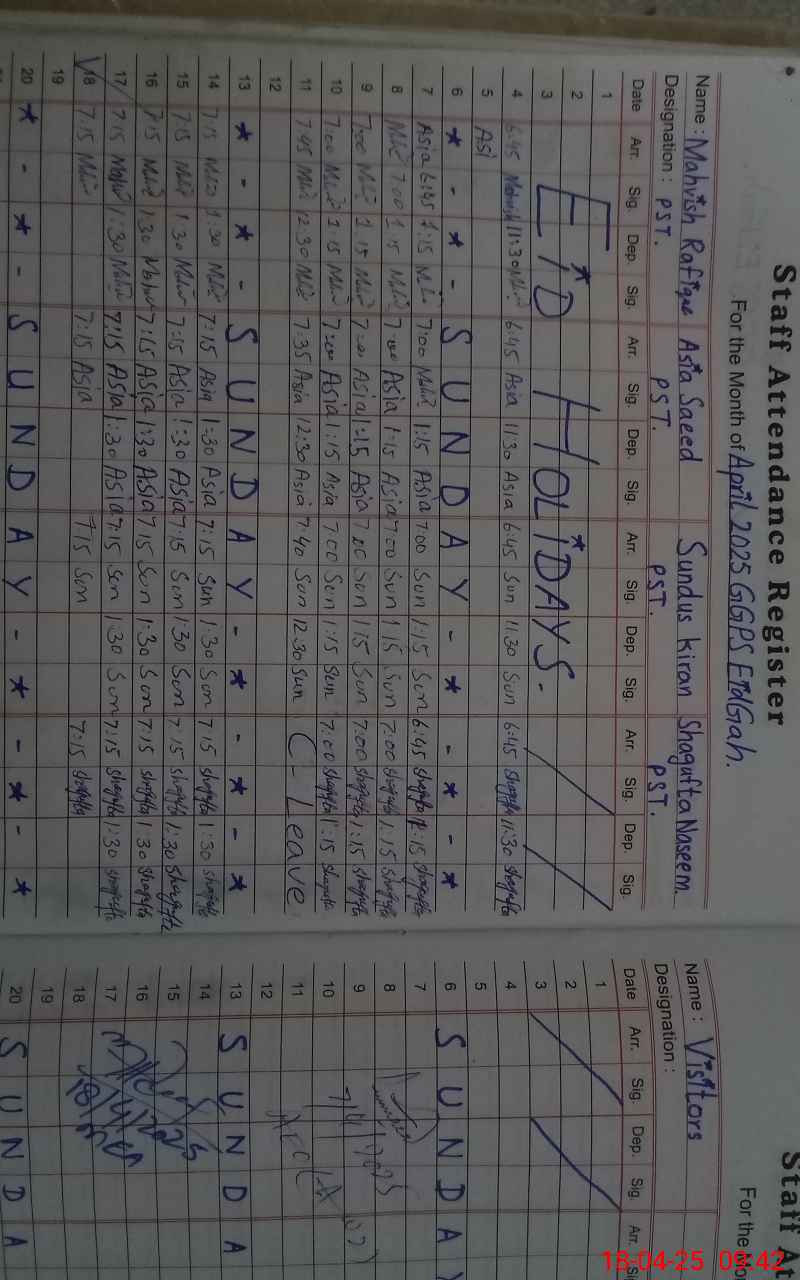 Staff Attendance Register
For the Month of April 2025 GGPS EidGah.
Name : Mahvish Rafique Asia Saeed Sundus Kiran Shagufta Naseem.
Designation : PST. PST. PST. PST.
Date Arr. Sig. Dep. Sig. Arr. Sig. Dep. Sig. Arr. Sig. Dep. Sig. Arr. Sig. Dep. Sig.
1
2
3 EID HOLIDAYS.
4 6:45 Mahvish 11:30 6:45 Asia 11:30 Asia 6:45 Sun 11:30 Sun 6:45 Shagufta 11:30 Shagufta
5 Asi
6 * - * - SUNDAY - * - * - *
7 Asia 6:45 1:15 7:00 1:15 Asia 7:00 Sun 1:15 Sun 6:45 Shagufta 1:15 Shagufta
8 7:00 1:15 7:00 Asia 1:15 Asia 7:00 Sun 1:15 Sun 7:00 Shagufta 1:15 Shagufta
9 7:00 1:15 7:00 Asia 1:15 Asia 7:00 Sun 1:15 Sun 7:00 Shagufta 1:15 Shagufta
10 7:00 1:15 7:00 Asia 1:15 Asia 7:00 Sun 1:15 Sun 7:00 Shagufta 1:15 Shagufta
11 7:45 12:30 7:35 Asia 12:30 Asia 7:40 Sun 12:30 Sun C-Leave
12
13 * - * - SUNDAY - * - * - *
14 7:15 1:30 7:15 Asia 1:30 Asia 7:15 Sun 1:30 Sun 7:15 Shagufta 1:30 Shagufta
15 7:15 1:30 7:15 Asia 1:30 Asia 7:15 Sun 1:30 Sun 7:15 Shagufta 1:30 Shagufta
16 7:15 1:30 7:15 Asia 1:30 Asia 7:15 Sun 1:30 Sun 7:15 Shagufta 1:30 Shagufta
17 7:15 1:30 7:15 Asia 1:30 Asia 7:15 Sun 1:30 Sun 7:15 Shagufta 1:30 Shagufta
18 7:15 7:15 Asia 7:15 Sun 7:15 Shagufta
19
20 * - * - SUNDAY - * - * - *
Staff At
For the Mo
Name : Visitors
Designation :
Date Arr. Sig. Dep. Sig. Arr.
1
2
3
4
5
6 SUNDAY
7
8
9
10
11
12
13 SUNDA
14
15
16
17
18
19
20 SUNDA
18-04-25 09:42